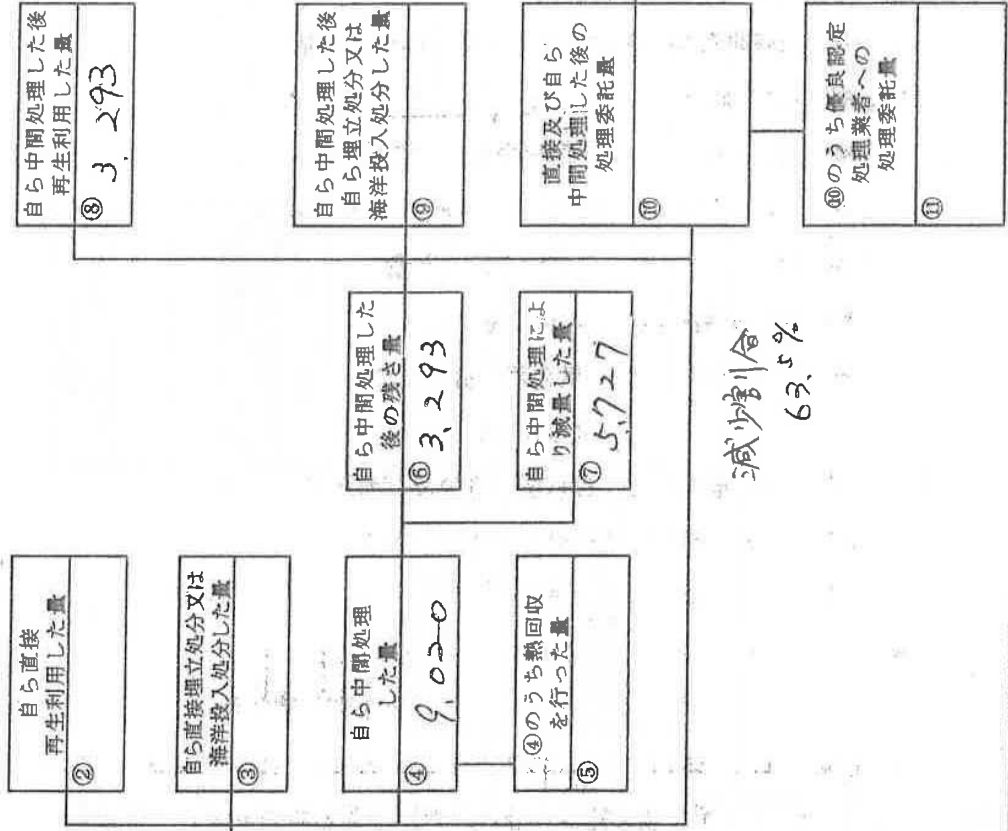 自ら直接
再生利用した量
②
自ら直接埋立処分又は
海洋投入処分した量
③
自ら中間処理
した量
④ 9,020
④のうち熱回収
を行った量
⑤
自ら中間処理した
後の残さ量
⑥ 3,293
自ら中間処理によ
り減量した量
⑦ 5,727
減少割合
63.5%
自ら中間処理した後
再生利用した量
⑧ 3,293
自ら中間処理した後
自ら埋立処分又は
海洋投入処分した量
⑨
直接及び自ら
中間処理した後の
処理委託量
⑩
⑩のうち優良認定
処理業者への
処理委託量
⑪